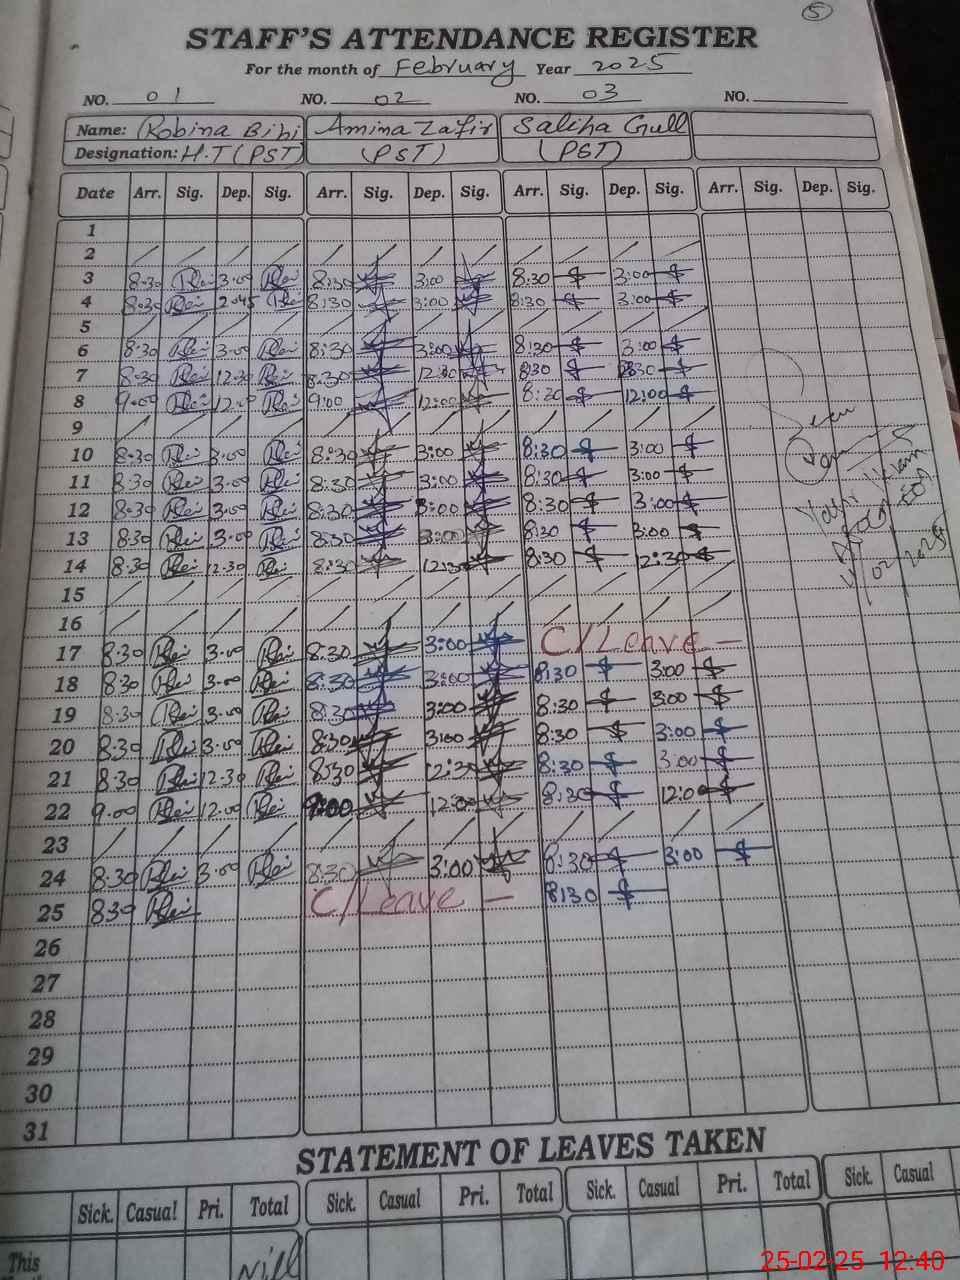 5
STAFF'S ATTENDANCE REGISTER
For the month of February Year 2025
NO. 01 NO. 02 NO. 03 NO.
Name: Robina Bibi Amina Zafir Saliha Gull
Designation: H.T (PST) (PST) (PST)
Date Arr. Sig. Dep. Sig. Arr. Sig. Dep. Sig. Arr. Sig. Dep. Sig. Arr. Sig. Dep. Sig.
1
2 / / / / / / / / / / / /
3 8:30 3:00 8:30 3:00 8:30 3:00
4 8:30 2:45 8:30 3:00 8:30 3:00
5 / / / / / / / / / / / /
6 8:30 3:00 8:30 3:00 8:30 3:00
7 8:30 12:30 8:30 12:30 8:30
8 9:00 12:00 9:00 12:00 8:30 12:00
9 / / / / / / / / / / / /
10 8:30 3:00 8:30 3:00 8:30 3:00
11 8:30 3:00 8:30 3:00 8:30 3:00
12 8:30 3:00 8:30 3:00 8:30 3:00
13 8:30 3:00 8:30 3:00 8:30 3:00
14 8:30 12.30 8:30 12:30 8:30 2:30
15 / / / / / / / / / / / /
16 / / / / / / / / / / / /
17 8:30 3:00 8:30 3:00 C/Leave —
18 8:30 3:00 8:30 3:00 8:30 3:00
19 8:30 3:00 8:30 3:00 8:30 3:00
20 8:30 3:00 8:30 3:00 8:30 3:00
21 8:30 12.30 8:30 12:30 8:30 3:00
22 9:00 12:00 9:00 12:00 8:30 12:00
23 / / / / / / / / / / / /
24 8:30 3:00 8:30 3:00 8:30 3:00
25 8:30 C/Leave — 8:30
26
27
28
29
30
31
02/2025
STATEMENT OF LEAVES TAKEN
Sick. Casual Pri. Total Sick. Casual Pri. Total Sick. Casual Pri. Total Sick. Casual
This Nill
25-02-25 12:40